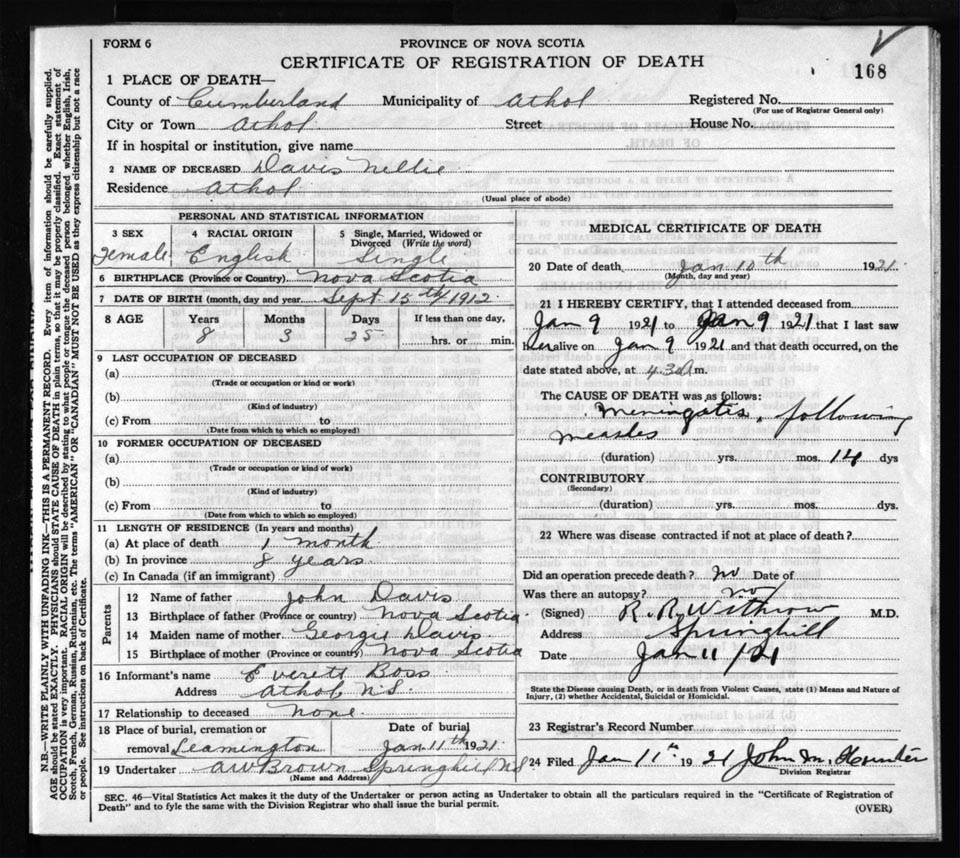 FORM 6
PROVINCE OF NOVA SCOTIA
CERTIFICATE OF REGISTRATION OF DEATH
168
1 PLACE OF DEATH—
County of Cumberland Municipality of Athol Registered No.
(For use of Registrar General only)
City or Town Athol Street House No.
If in hospital or institution, give name
2 NAME OF DECEASED Davis Nellie
Residence Athol
(Usual place of abode)
PERSONAL AND STATISTICAL INFORMATION
3 SEX 4 RACIAL ORIGIN 5 Single, Married, Widowed or Divorced (Write the word)
Female English Single
6 BIRTHPLACE (Province or Country) Nova Scotia
7 DATE OF BIRTH (month, day and year) Sept 15th/1912
8 AGE Years Months Days If less than one day,
8 3 25 hrs. or min.
9 LAST OCCUPATION OF DECEASED
(a)
(Trade or occupation or kind or work)
(b)
(Kind of industry)
(c) From to
(Date from which to which so employed)
10 FORMER OCCUPATION OF DECEASED
(a)
(Trade or occupation or kind of work)
(b)
(Kind of industry)
(c) From to
(Date from which to which so employed)
11 LENGTH OF RESIDENCE (In years and months)
(a) At place of death 1 month
(b) In province 8 years
(c) In Canada (if an immigrant)
Parents
12 Name of father John Davis
13 Birthplace of father (Province or country) Nova Scotia
14 Maiden name of mother Georgie Davis
15 Birthplace of mother (Province or country) Nova Scotia
16 Informant's name Everett Boss
Address Athol N.S.
17 Relationship to deceased None
18 Place of burial, cremation or Date of burial
removal Leamington Jan 11th 1921
19 Undertaker AW Brown Springhill NS
(Name and Address)
MEDICAL CERTIFICATE OF DEATH
20 Date of death Jan 10th 1921
(Month, day and year)
21 I HEREBY CERTIFY, that I attended deceased from
Jan 9 1921 to Jan 9 1921 that I last saw
her alive on Jan 9 1921 and that death occurred, on the
date stated above, at 4.30 a m.
The CAUSE OF DEATH was as follows:
Meningatis, following
measles
(duration) yrs. mos. 14 dys
CONTRIBUTORY
(Secondary)
(duration) yrs. mos. dys.
22 Where was disease contracted if not at place of death?
Did an operation precede death? no Date of
Was there an autopsy? no
(Signed) R. R. Withrow M.D.
Address Springhill
Date Jan 11/21
State the Disease causing Death, or in death from Violent Causes, state (1) Means and Nature of
Injury, (2) whether Accidental, Suicidal or Homicidal.
23 Registrar's Record Number
24 Filed Jan 11th 1921 John M.
Division Registrar
SEC. 46—Vital Statistics Act makes it the duty of the Undertaker or person acting as Undertaker to obtain all the particulars required in the "Certificate of Registration of
Death" and to fyle the same with the Division Registrar who shall issue the burial permit.
(OVER)
N.B.—WRITE PLAINLY WITH UNFADING INK—THIS IS A PERMANENT RECORD. Every item of information should be carefully supplied.
AGE should be stated EXACTLY. PHYSICIANS should STATE CAUSE OF DEATH in plain terms, so that it may be properly classified. Exact statement of
OCCUPATION is very important. RACIAL ORIGIN will be described by stating to what people or tongue the deceased person belonged whether English, Irish,
Scotch, French, German, Russian, Ruthenian, etc. The terms "AMERICAN" OR "CANADIAN" MUST NOT BE USED as they express citizenship but not a race
or people. See instructions on back of Certificate.